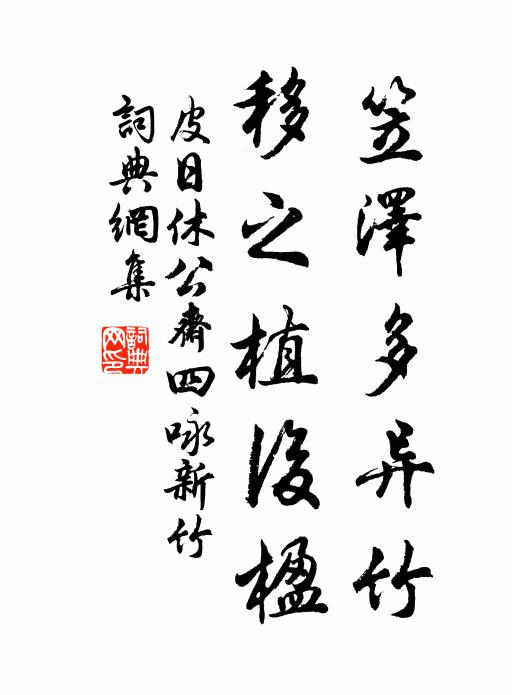 笠澤多异竹
移之植後楹
皮日休公齋四咏新竹
詞典網集
詞典网印